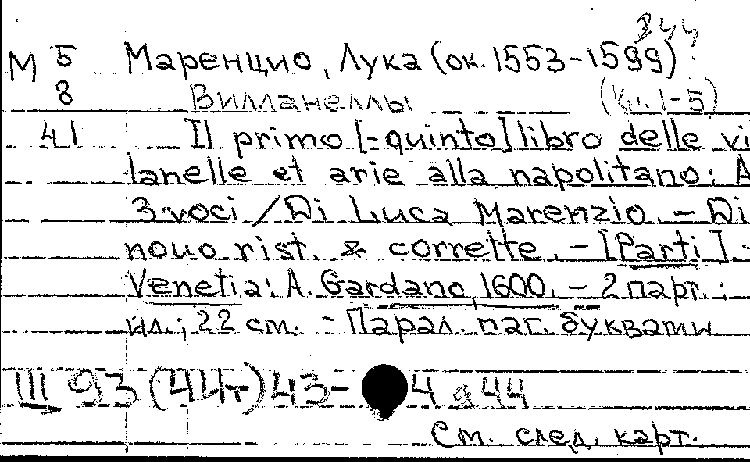 344
М 5 Маренцио, Лука (ок. 1553-1599)
8 Вилланеллы (Кн. 1-5)
41 Il primo [-quinto] libro delle vi
lanelle et arie alla napolitano: A
3 voci / Di Luca Marenzio. - Di
nouo rist. & corrette. - [Parti]. -
Venetia: A. Gardano, 1600. - 2 парт.:
ил.; 22 см. - Парал. паг. буквами
III 93 (44т) 43- 4 а 44
См. след. карт.